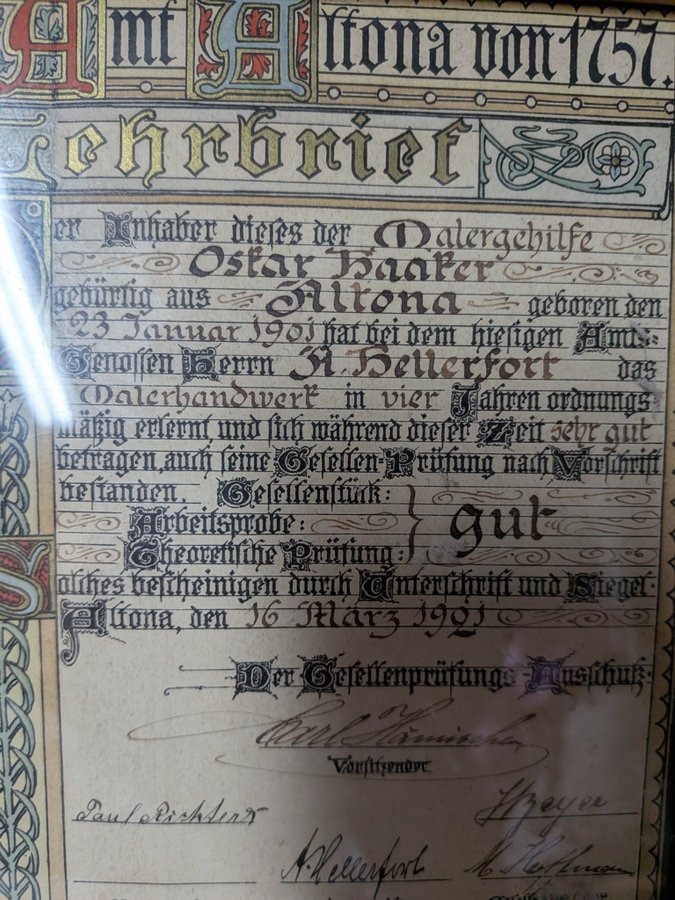 Amt Altona von 1757.
Lehrbrief
er Inhaber dieses der Malergehilfe
Oskar Haaker
gebürtig aus Altona geboren den
23 Januar 1901 hat bei dem hiesigen Amts-
Genossen Herrn A. Hellerfort das
Malerhandwerk in vier Jahren ordnungs-
mäßig erlernt und sich während dieser Zeit sehr gut
betragen, auch seine Gesellen-Prüfung nach Vorschrift
bestanden. Gesellenstück:
Arbeitsprobe: } gut
Theoretische Prüfung:
Solches bescheinigen durch Unterschrift und Siegel.
Altona, den 16 März 1921
Der Gesellenprüfungs-Ausschuß:
Karl
Vorsitzender
Paul Richter
A. Hellerfort M. Hoffmann